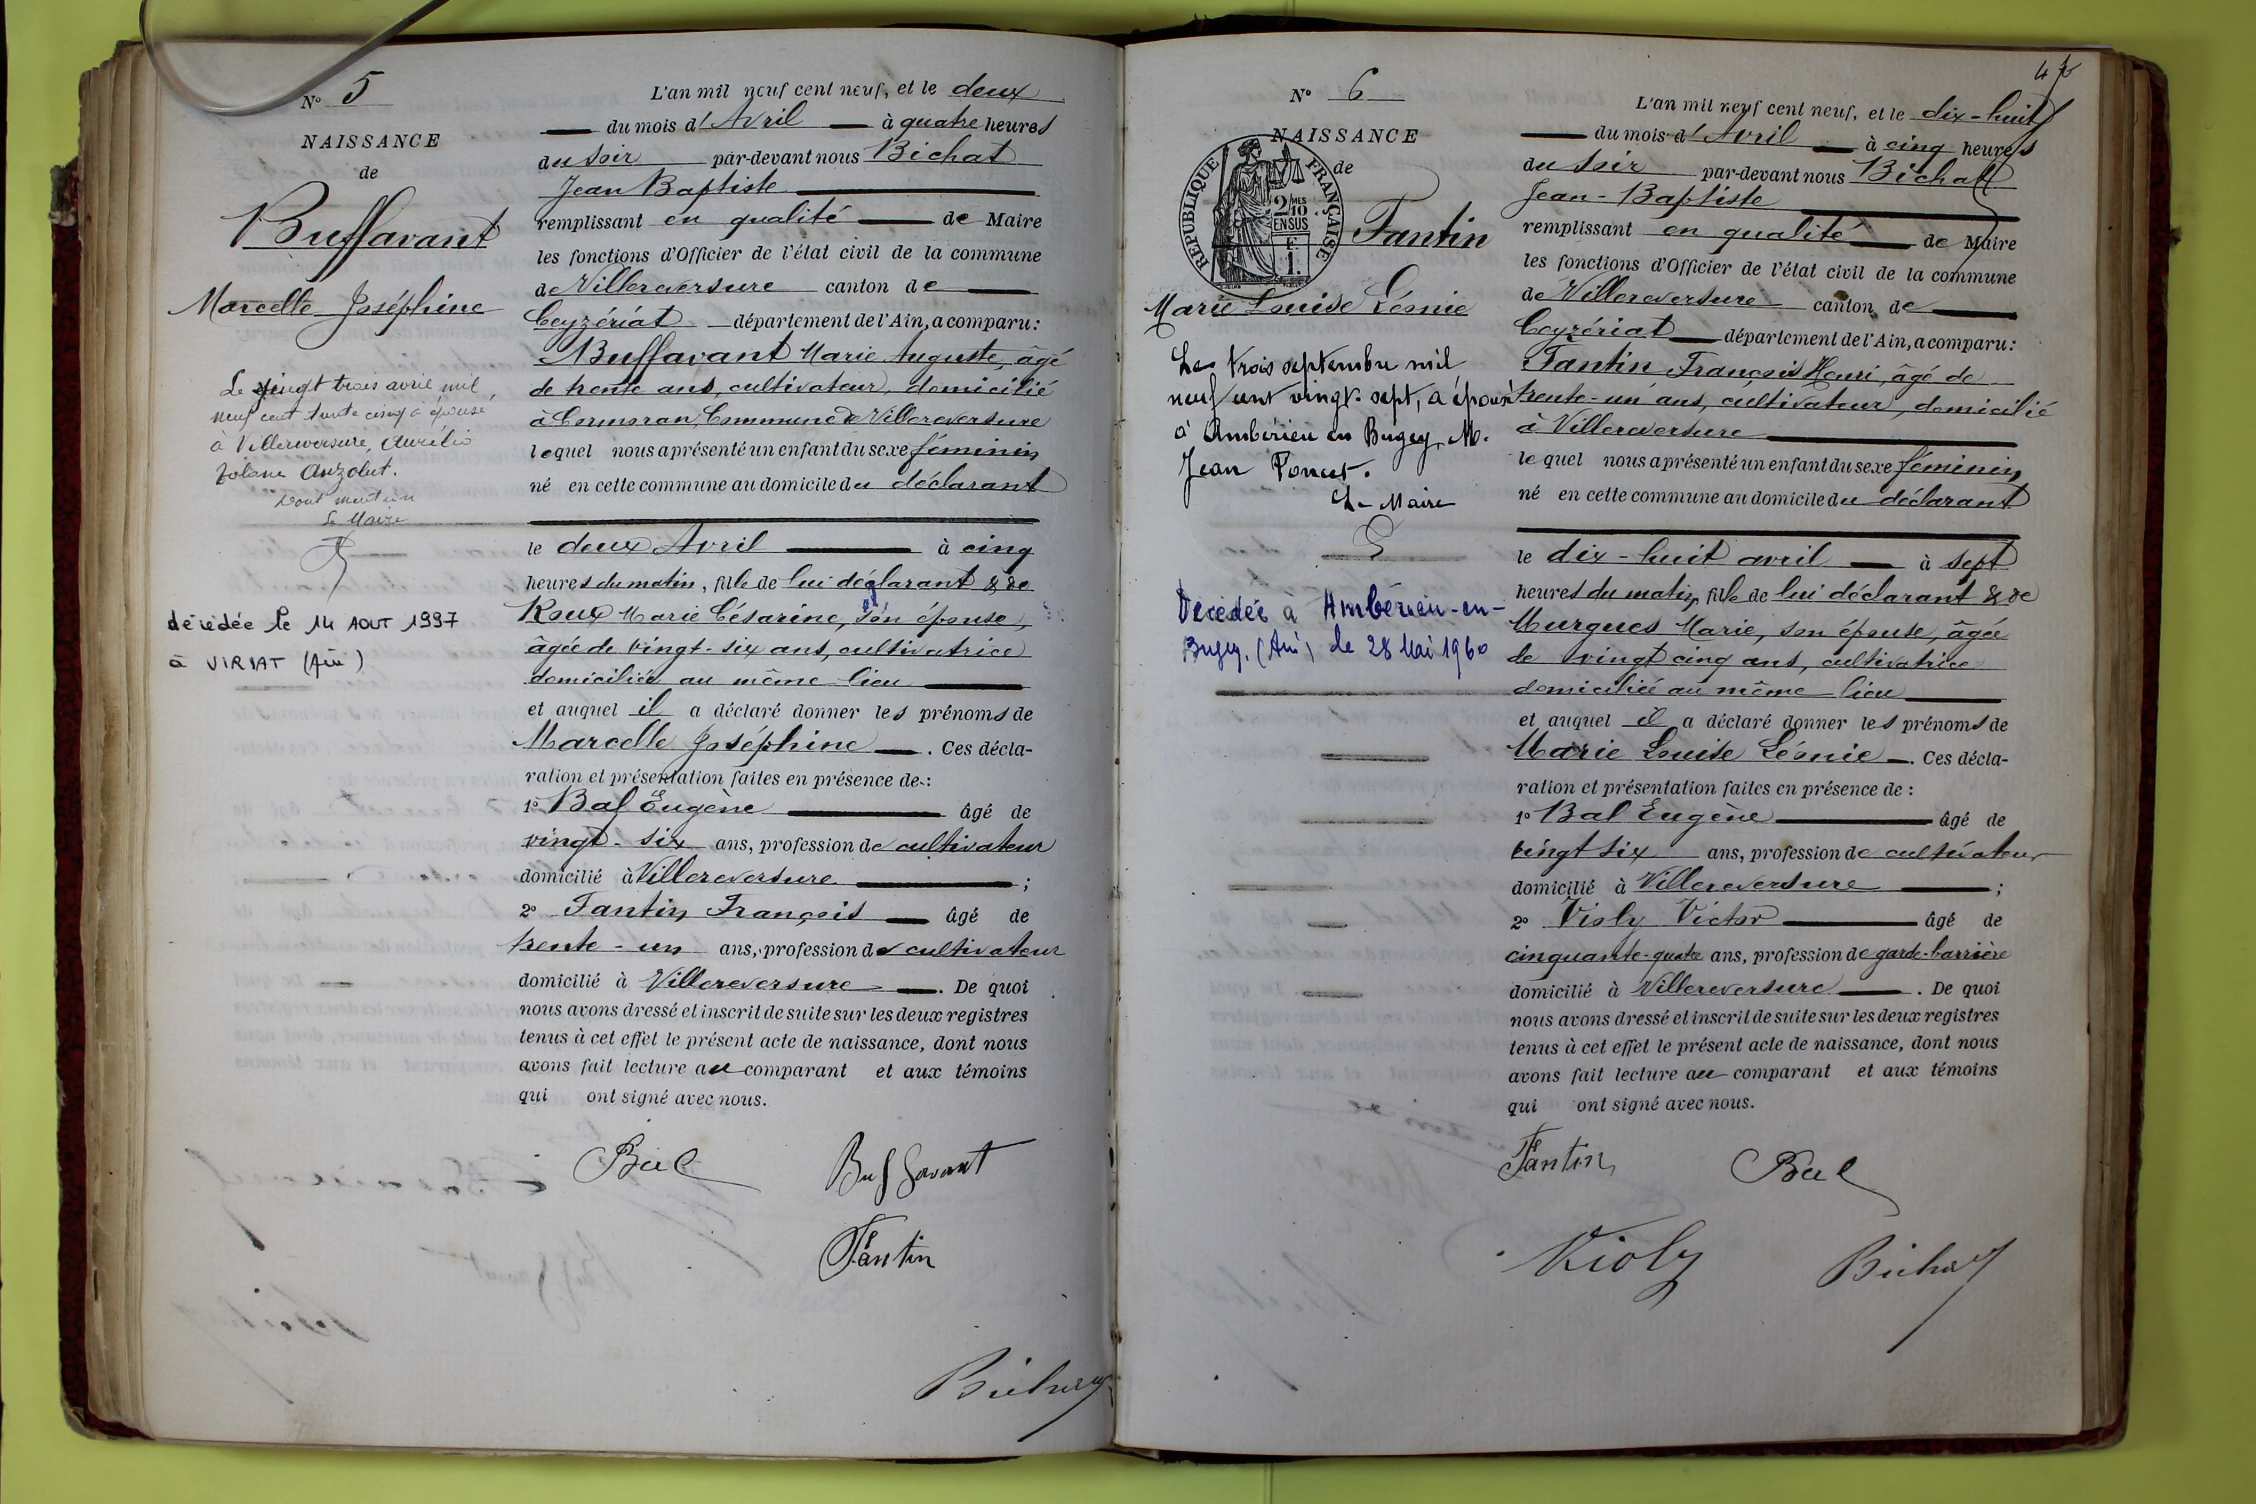 N° 5
NAISSANCE
de
Buffavant
Marcelle Joséphine
Le vingt trois avril mil
neuf cent trente cinq a épousé
à Villereversure, Aurélio
Anzolut.
Dont mention
Le Maire
décédée le 14 AOUT 1997
à VIRIAT (Ain)
L'an mil neuf cent neuf, et le deux
du mois d'Avril à quatre heures
du soir par-devant nous Bichat
Jean Baptiste
remplissant en qualité de Maire
les fonctions d'Officier de l'état civil de la commune
de Villereversure canton de
Ceyzériat département de l'Ain, a comparu:
Buffavant Marie Auguste, âgé
de trente ans, cultivateur, domicilié
à Cormoran, Commune de Villereversure
lequel nous a présenté un enfant du sexe féminin
né en cette commune au domicile du déclarant
le deux Avril à cinq
heures du matin, fille de lui déclarant & de
Roux Marie Césarine, son épouse,
âgée de vingt-six ans, cultivatrice
domiciliée au même lieu
et auquel il a déclaré donner les prénoms de
Marcelle Joséphine. Ces décla-
ration et présentation faites en présence de:
1° Bal Eugène âgé de
vingt-six ans, profession de cultivateur
domicilié à Villereversure ;
2° Fantin François âgé de
trente-un ans, profession de cultivateur
domicilié à Villereversure. De quoi
nous avons dressé et inscrit de suite sur les deux registres
tenus à cet effet le présent acte de naissance, dont nous
avons fait lecture au comparant et aux témoins
qui ont signé avec nous.
Bal Buffavant
Fantin
Bichat
47
N° 6
NAISSANCE
de
RÉPUBLIQUE FRANÇAISE
2/10 MES
EN SUS
F.
1.
Fantin
Marie Louise Léonie
Le trois septembre mil
neuf cent vingt-sept, a épousé
à Ambérieu en Bugey, M.
Jean Poncet.
Le Maire
Décédée à Ambérieu-en-
Bugey. (Ain) le 28 Mai 1960
L'an mil neuf cent neuf, et le dix-huit
du mois d'Avril à cinq heures
du soir par-devant nous Bichat
Jean-Baptiste
remplissant en qualité de Maire
les fonctions d'Officier de l'état civil de la commune
de Villereversure canton de
Ceyzériat département de l'Ain, a comparu:
Fantin François Henri, âgé de
trente-un ans, cultivateur, domicilié
à Villereversure
lequel nous a présenté un enfant du sexe féminin
né en cette commune au domicile du déclarant
le dix-huit avril à sept
heures du matin, fille de lui déclarant & de
Murgues Marie, son épouse, âgée
de vingt cinq ans, cultivatrice
domiciliée au même lieu
et auquel il a déclaré donner les prénoms de
Marie Louise Léonie. Ces décla-
ration et présentation faites en présence de :
1° Bal Eugène âgé de
vingt six ans, profession de cultivateur
domicilié à Villereversure ;
2° Violy Victor âgé de
cinquante-quatre ans, profession de garde-barrière
domicilié à Villereversure. De quoi
nous avons dressé et inscrit de suite sur les deux registres
tenus à cet effet le présent acte de naissance, dont nous
avons fait lecture au comparant et aux témoins
qui ont signé avec nous.
Fantin Bal
Violy Bichat